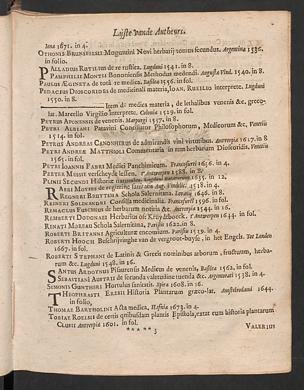 Lijste vande Autheurs.
Iena 1671. in 4.
OTHONIS BRUNSFELSII Moguntini Novi herbarij tomus secundus. Argentina 1536.
in folio.
PALLADIUS RUTILIUS de re rustica. Lugduni 1541. in 8.
PAMPHILII MONTII Bononiensis Methodus medendi. Augustæ Vind. 1540. in 8.
PAULUS ÆGINETA de tota re medica. Basileæ 1556. in fol.
PEDACIUS DIOSCORIDES de medicinali materia, IOAN. RUELLIO interprete. Lugduni
1550. in 8.
Item de medica materia, de lethalibus venenis &c. græco-
lat. Marcello Virgilio interprete. Coloniæ 1529. in fol.
PETRUS APONENSIS de venenis. Marpurgi 1517. in 8.
PETRI ALBANI Patavini Conciliator Philosophorum, Medicorum &c. Venetiis
1514. in fol.
PETRUS ANDREAS CANONHERUS de admirandis vini virtutibus. Antverpiæ 1627. in 8
PETRI ANDREÆ MATTHIOLI Commentaria in rem herbariam Dioscoridis. Venetiis
1565. in fol.
PETRI IOANNIS FABRI Medici Panchimicum. Francofurti 1656. in 4.
PIETER MESSIE verscheyde lessen. t'Antwerpen 1588. in 8.
PLINII SECUNDI Historiæ 1635. in 12.
RABBI MOYSES de regimine sanitatis Aug. Vindelic. 1518. in 4.
REGNERI BRUITSMA Schola Salernitana. 1646. in 8.
REINERI SOLENANDRI Consilia medicinalia. Francofurti 1596. in fol.
REMACLUS FUSCHIUS de herbarum notitia &c. Antverpiæ 1544. in 16.
REMBERTI DODONÆI Herbarius oft Kruydtboeck. t'Antwerpen 1644. in fol.
RENATI MOREAU Schola Salernitana. Parisiis 1622. in 8.
ROBERTI BRITANNI Agriculturæ encomium. Parisiis 1539. in 16.
ROBERTS HOOCH Beschrijvinghe van de vergroot-buyse, in het Engels. Tot Londen
1667. in fol.
ROBERTI STEPHANI de Latinis & Græcis nominibus arborum, fruticum, herba-
rum &c. Lugduni 1548. in 16.
SANTIS ARDOYNIS Pisaurensis Medicus de venenis, Basileæ 1562. in fol.
SEBASTIANI AUSTRII de secunda valetudine tuenda &c. Argentorati 1538. in 4.
SIMONIS GUNTHERI Hortulus sanitatis. Spiræ 1608. in 16.
THEOPHRASTI ERESII Historia Plantarum græco-lat. Amstelredami 1644.
in folio,
THOMÆ BARTHOLINI Acta medica, Hafniæ 1673. in 4.
TOBIAS ROELSII de certis quibusdam plantis Epistola, ratæ cum historia plantarum
CLUSII Antverpiæ 1601. in fol.
***** 3
VALERIUS